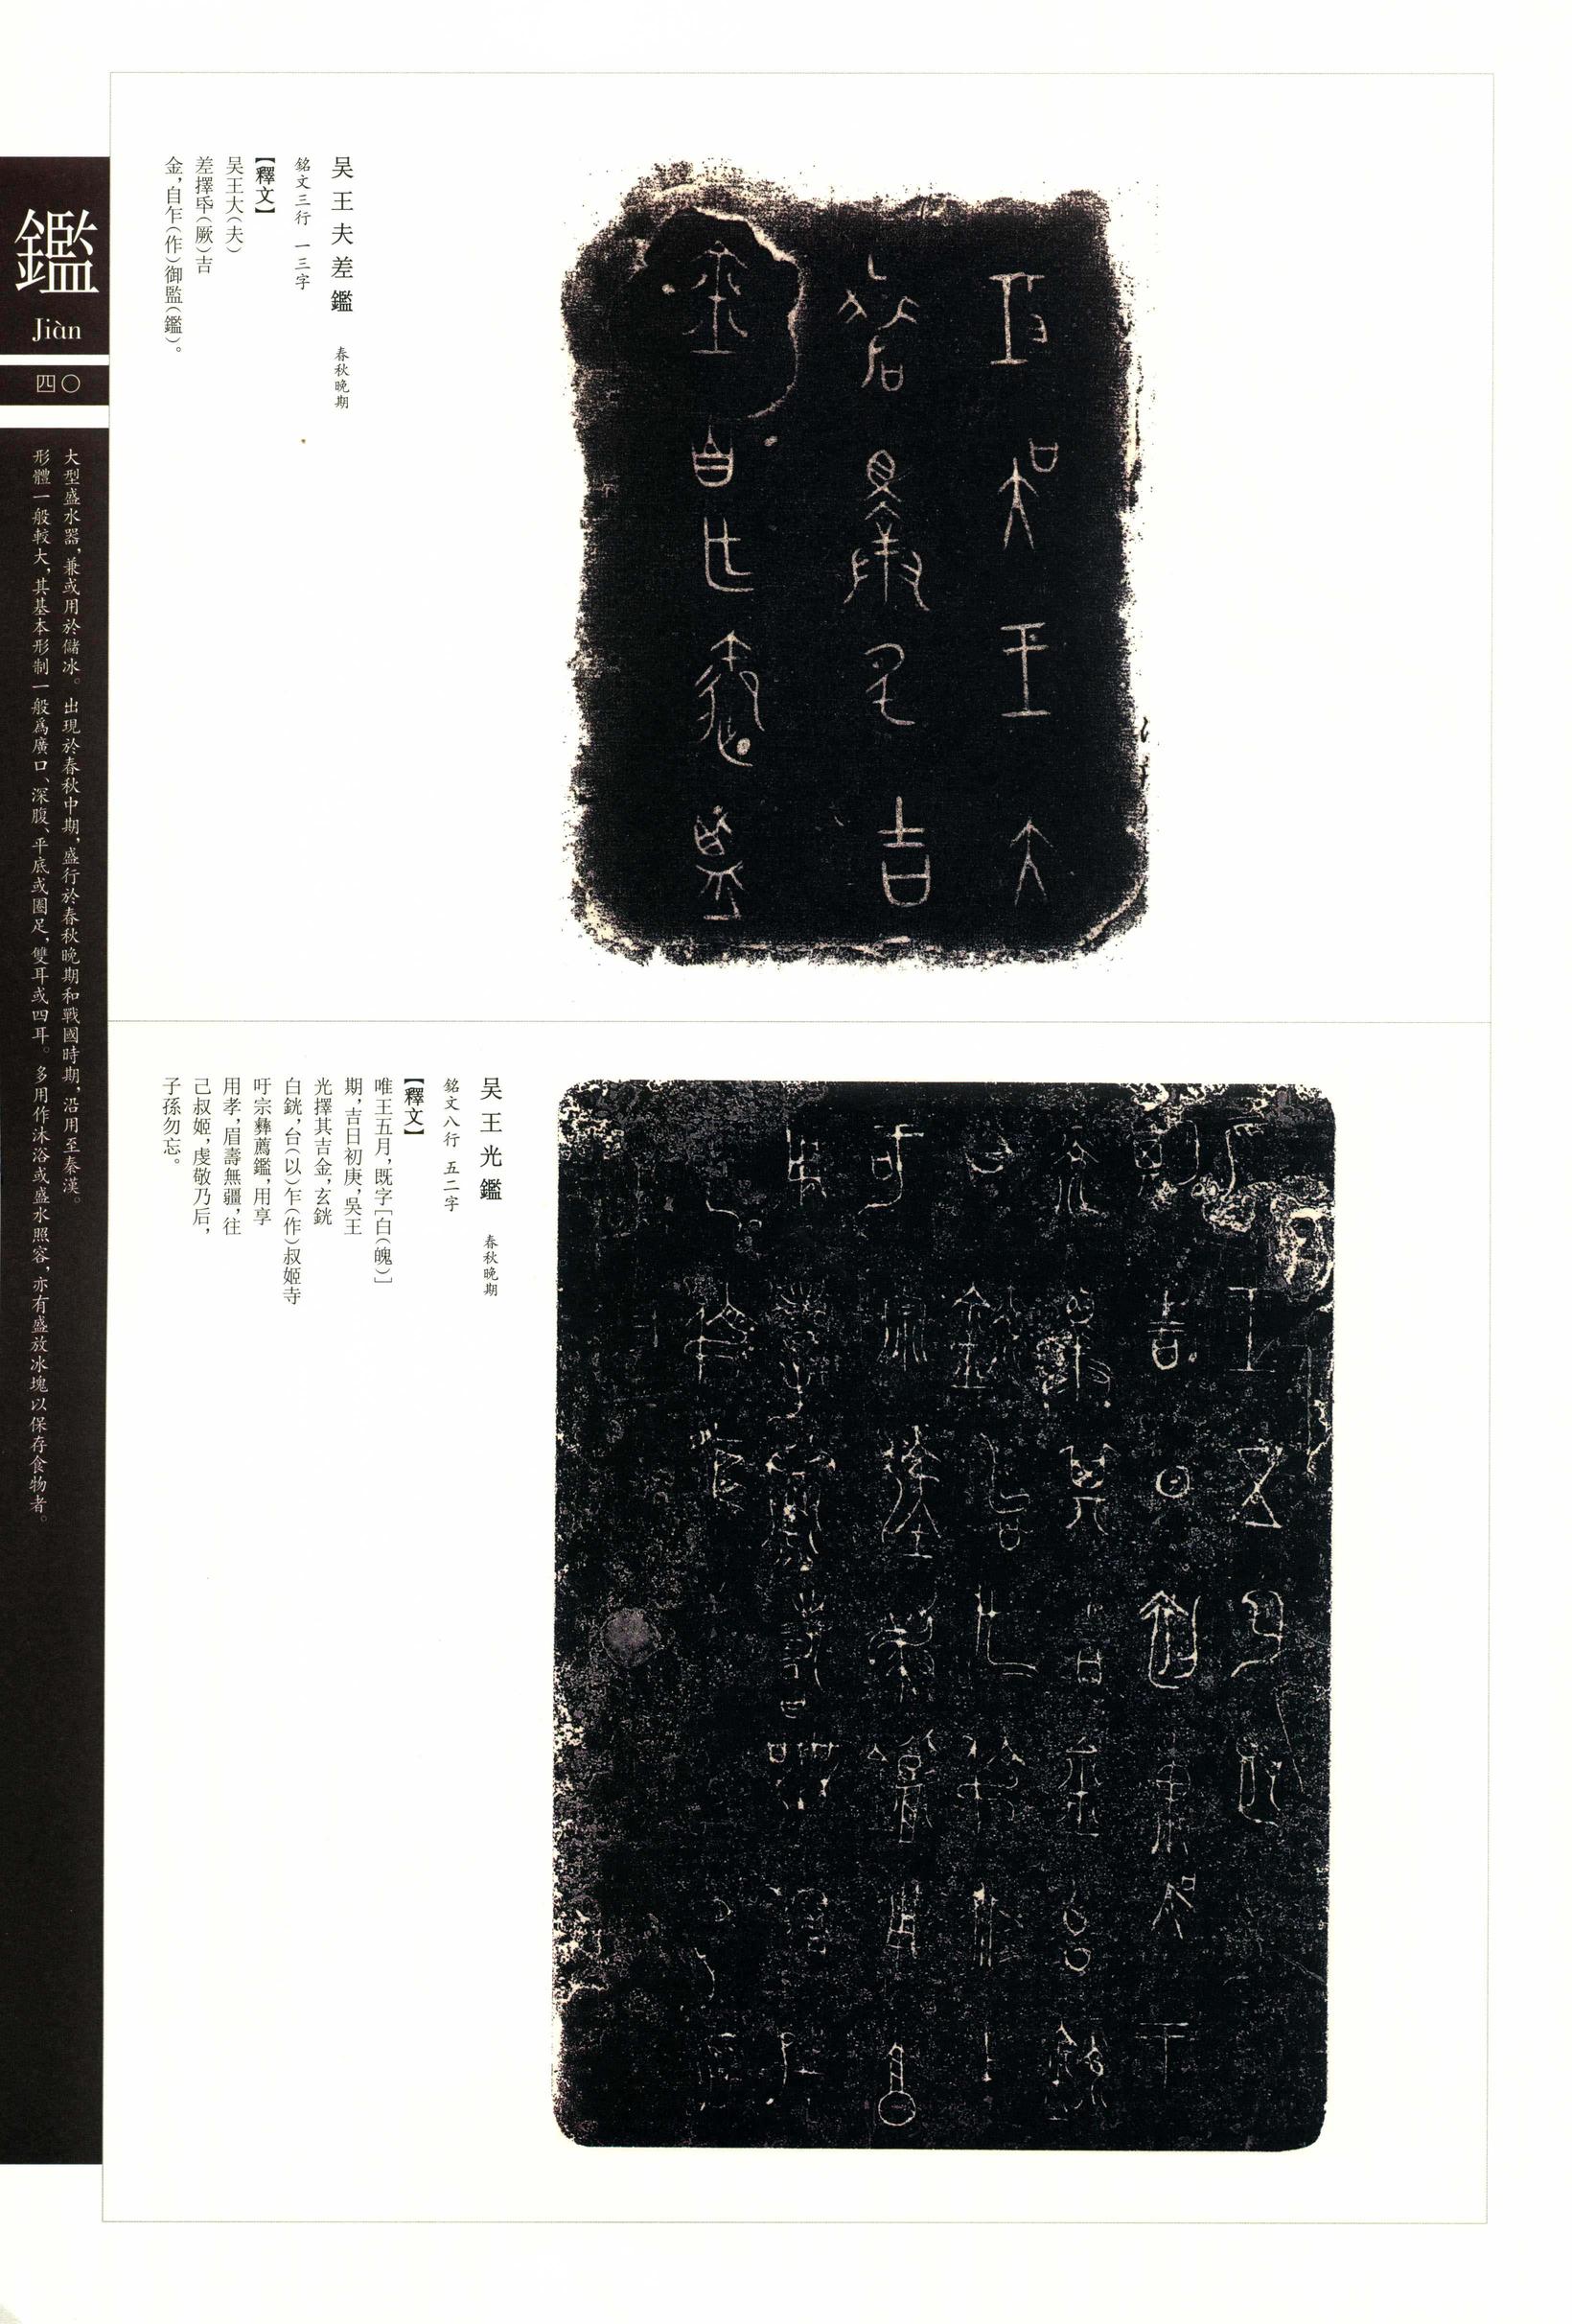 鑑
Jiàn
四〇
大型盛水器，兼或用於儲冰。出現於春秋中期，盛行於春秋晚期和戰國時期，沿用至秦漢。
形體一般較大，其基本形制一般爲廣口、深腹、平底或圈足，雙耳或四耳。多用作沐浴或盛水照容，亦有盛放冰塊以保存食物者。
吴王夫差鑑 春秋晚期
銘文三行 一三字
【釋文】
吴王大（夫）
差擇氒（厥）吉
金，自乍（作）御監（鑑）。
吴王光鑑 春秋晚期
銘文八行 五二字
【釋文】
唯王五月，既字［白（魄）］
期，吉日初庚，吴王
光擇其吉金，玄銧
白銧，台（以）乍（作）叔姬寺
吁宗彝薦鑑，用享
用孝，眉壽無疆，往
己叔姬，虔敬乃后，
子孫勿忘。